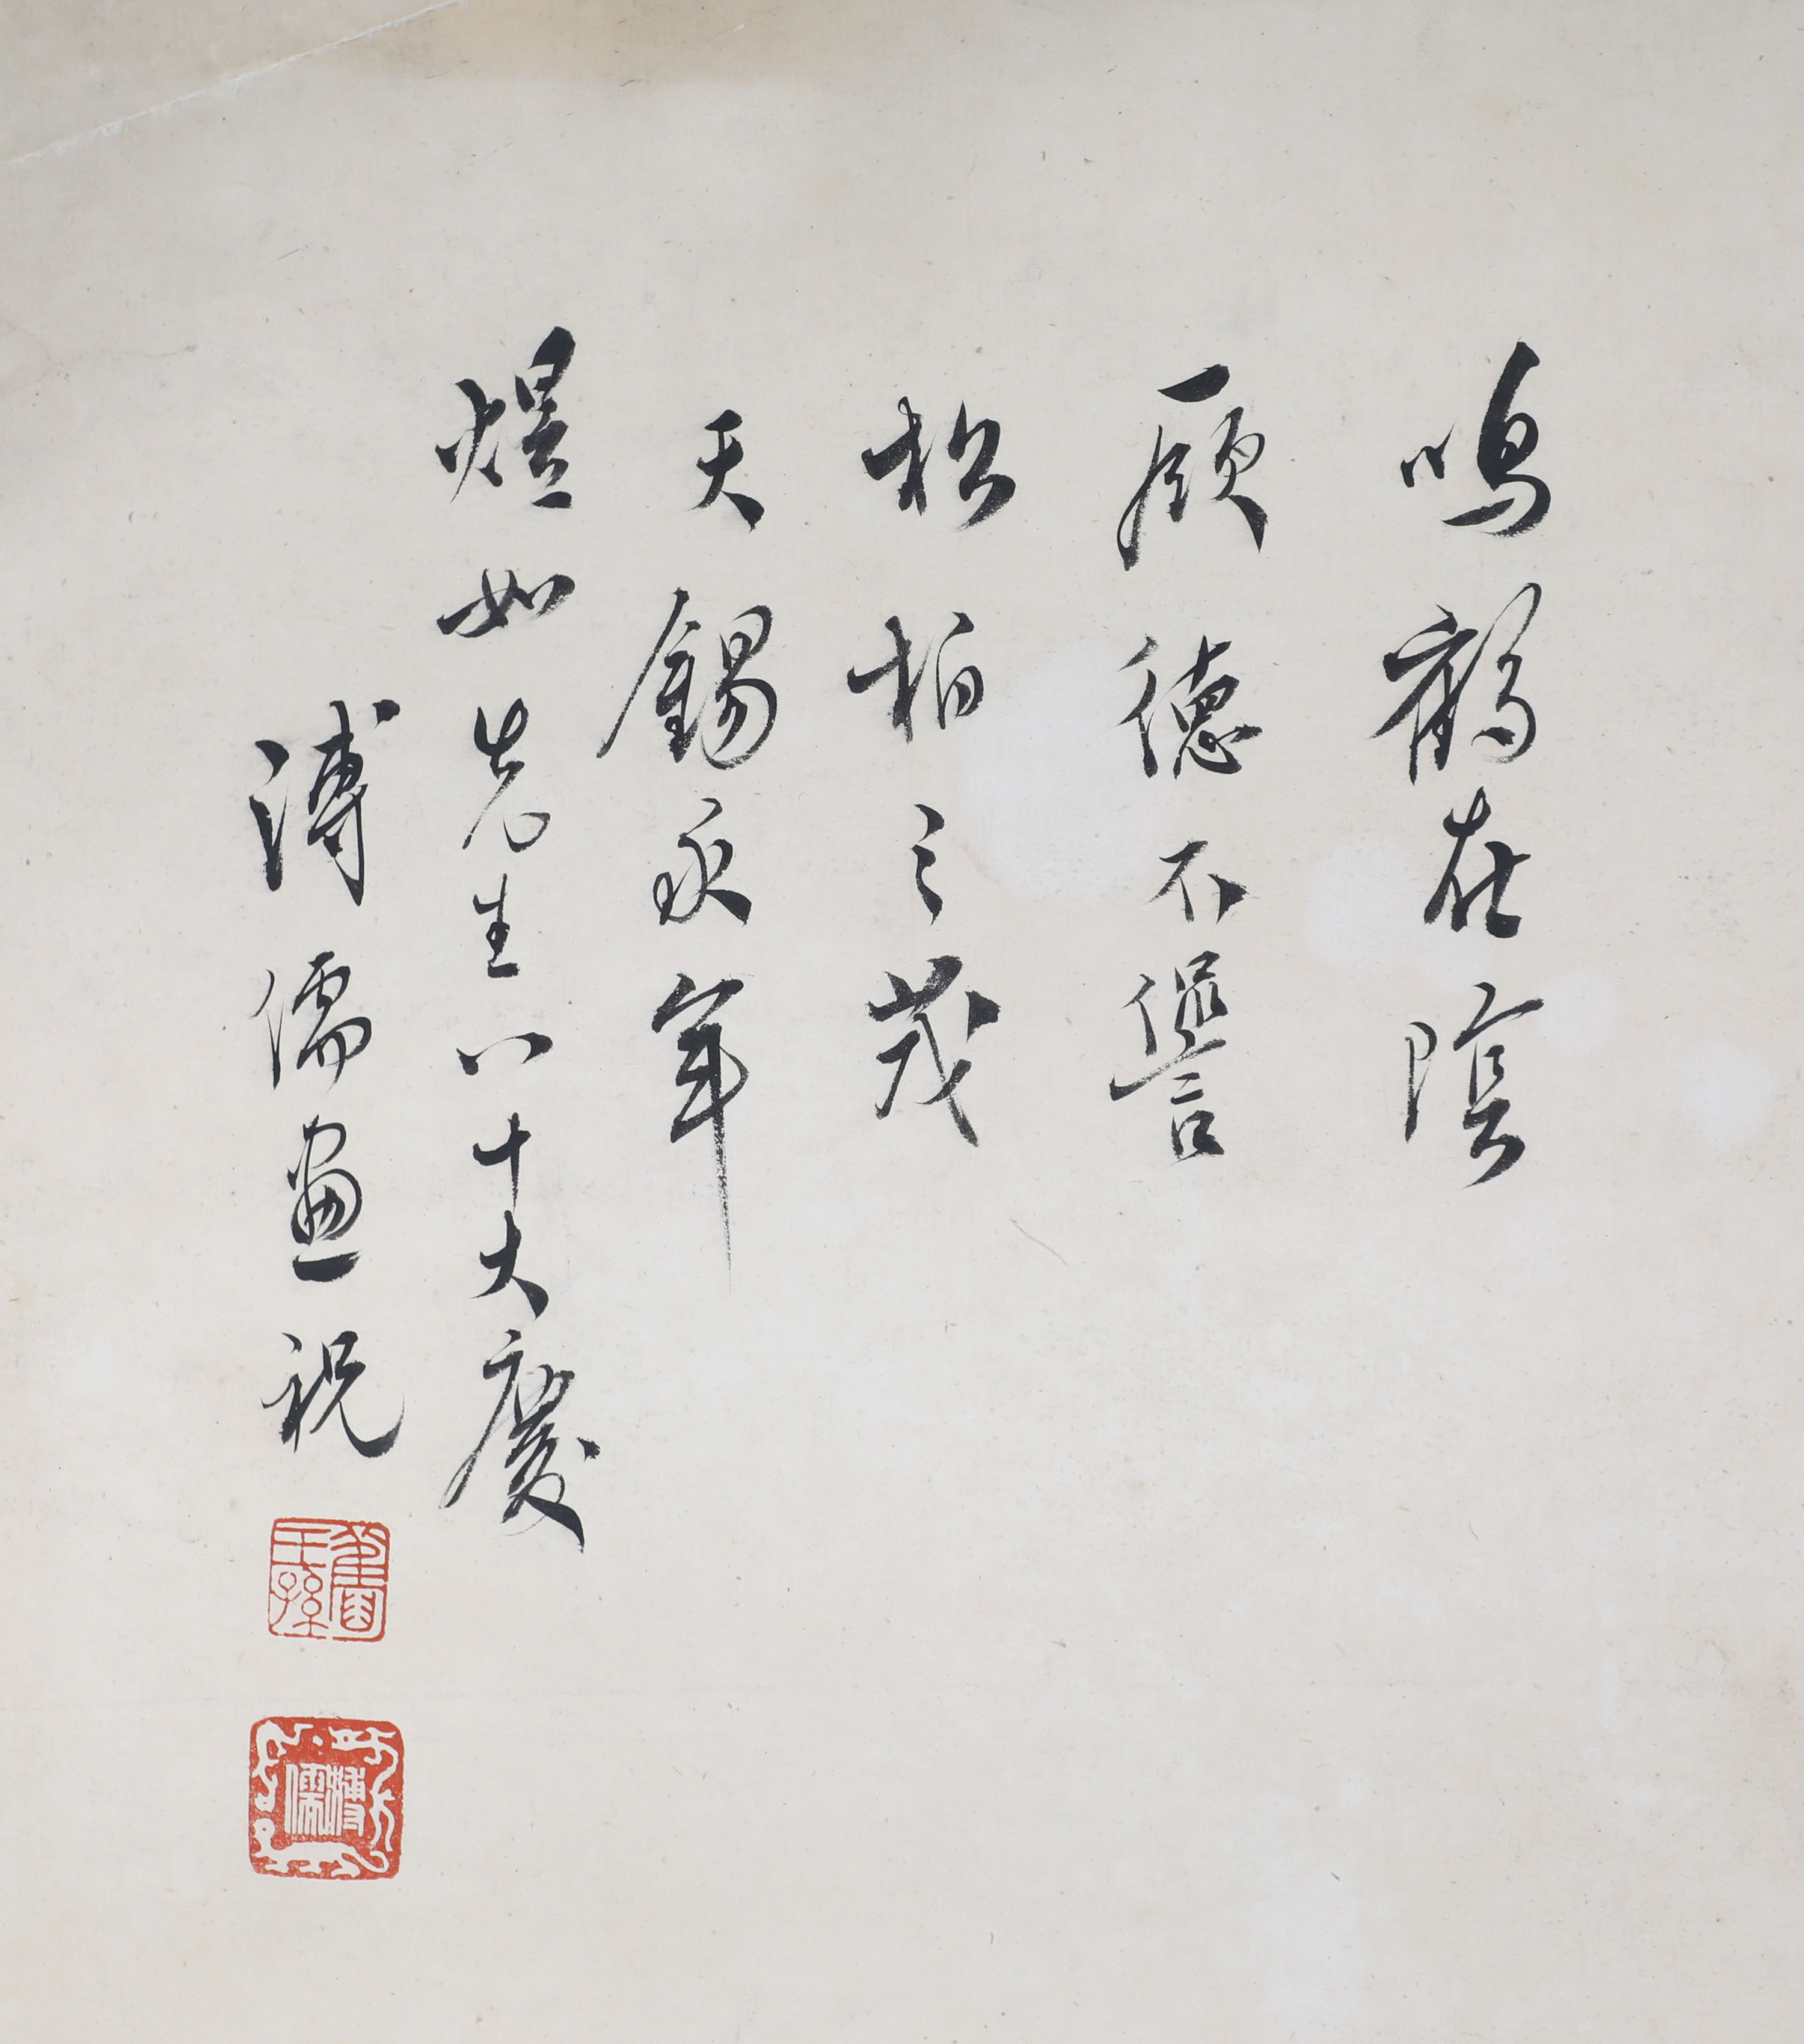 鳴鶴在陰
厥德不讐
松柏之茂
天錫永年
煜如先生八十大慶
溥儒畫祝
舊王孫
溥儒